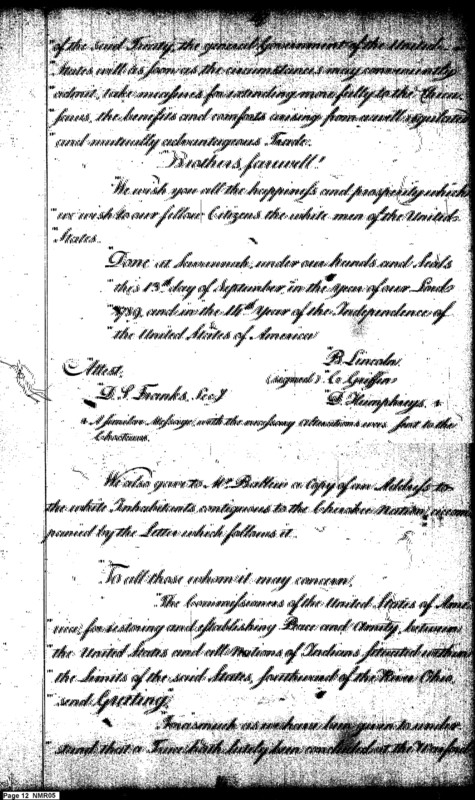 "of the said Treaty, the general Government of the United
"States will as soon as the circumstances may conveniently
"admit, take measures for extending more fully to the Chica-
"saws, the benefits and comforts arising from a well regulated
"and mutually advantageous Trade.
"Brothers, farewell!
"We wish you all the happiness and prosperity which
"we wish to our fellow Citizens the white men of the United
"States.
"Done at Savannah, under our hands and Seals
"this 13th day of September, in the Year of our Lord
"1789, and in the 14th Year of the Independence of
"the United States of America
"B. Lincoln
"Attest. (signed) "C. Griffin
"D. S. Franks, Secy "D. Humphreys. a
a A similar Message, with the necessary alterations was sent to the
Choctaws.
We also gave to Mr. Bullin a Copy of an Address to
the white Inhabitants contiguous to the Cherokee Nation, accom
panied by the Letter which follows it.
"To all those whom it may concern.
"The Commissioners of the United States of Ame
"rica, for restoring and establishing Peace and Amity, between
"the United States and all Nations of Indians situated within
"the Limits of the said States, southward of the River Ohio,
"send Greeting.
"Forasmuch as we have been given to under
"stand that a Truce hath lately been concluded at the
Page 12 NMR05